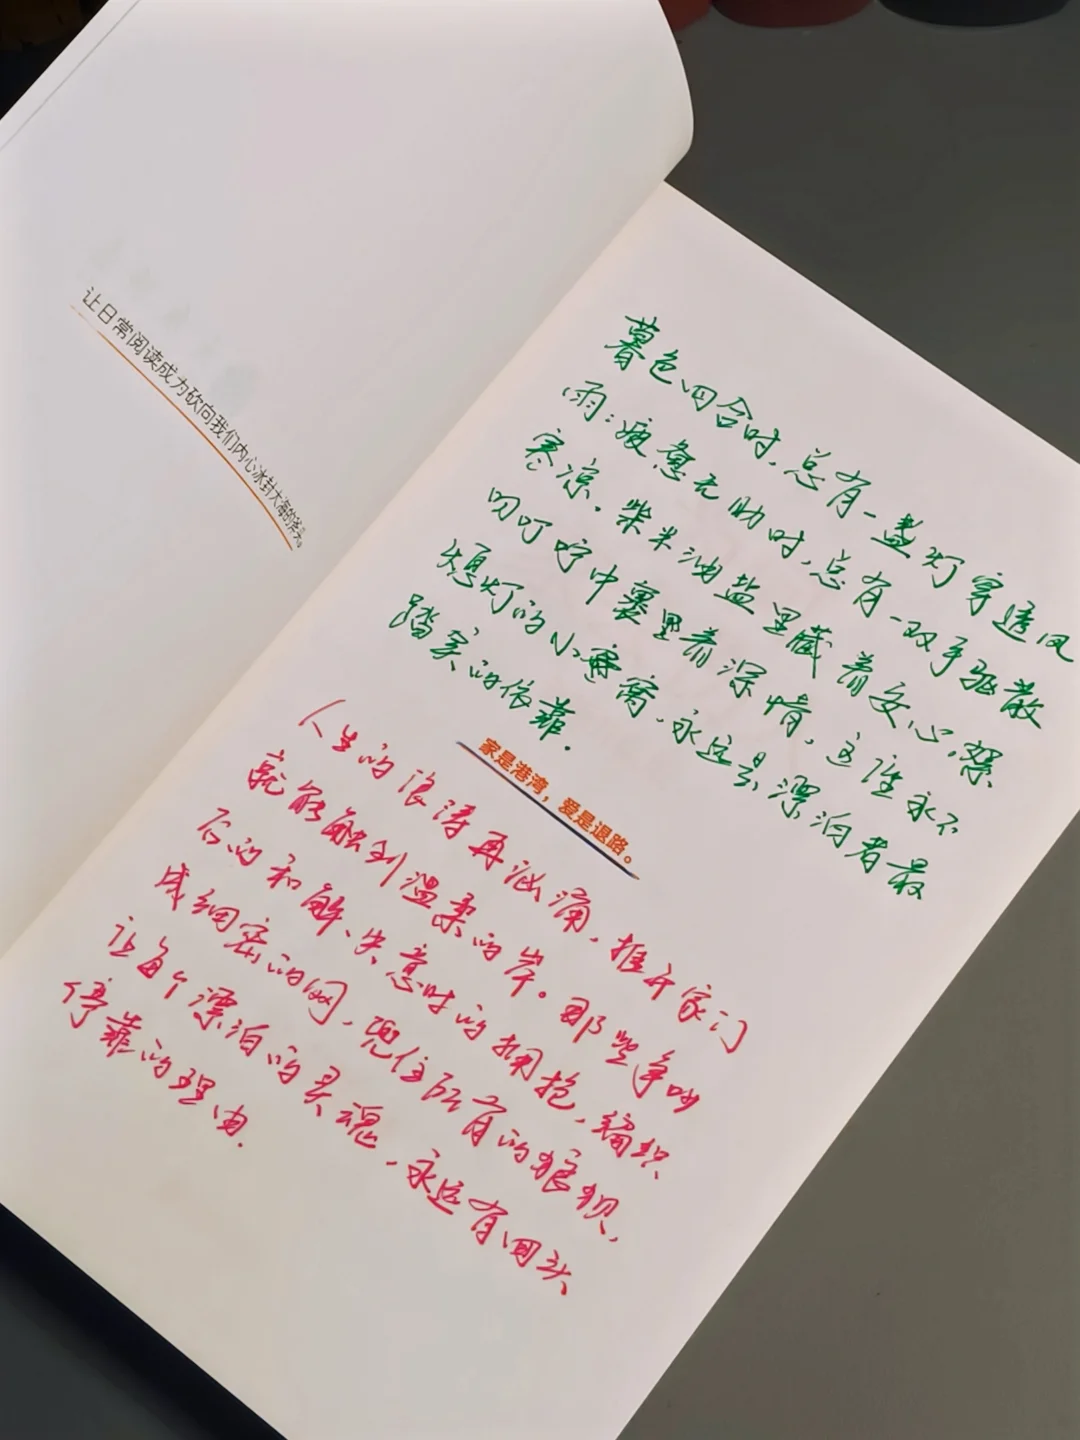 让日常阅读成为砍向我们内心冰封大海的斧头。
暮色四合时，总有一盏灯穿透风
雨；疲惫无助时，总有一双手驱散
寒凉。柴米油盐里藏着安心，絮
叨叮咛中裹里着深情，这谁永不
熄灯的小窝窝，永远是漂泊者最
踏实的依靠。
家是港湾，爱是退路。
人生的浪涛再汹涌，推开家门
就能触到温柔的岸。那些争吵
后的和解、失意时的拥抱，编织
成细密的网，兜住所有的狼狈，
让每个漂泊的灵魂，永远有回头
停靠的理由.